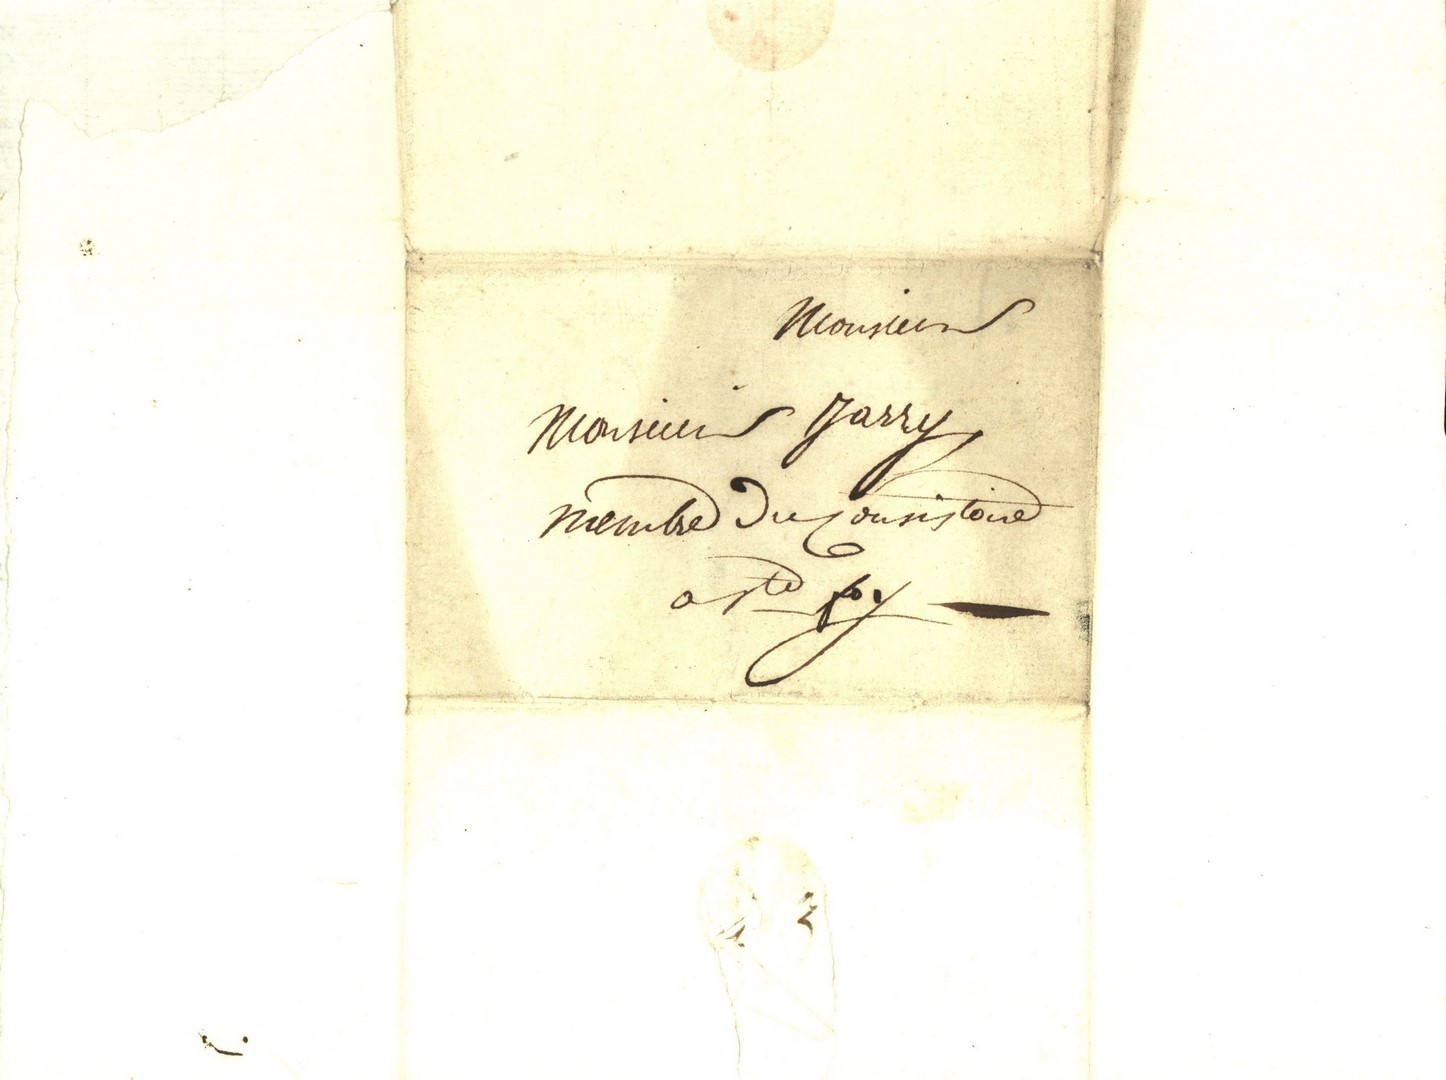 Monsieur
Monsieur Jarry
membre du Consistoire
a Ste foy